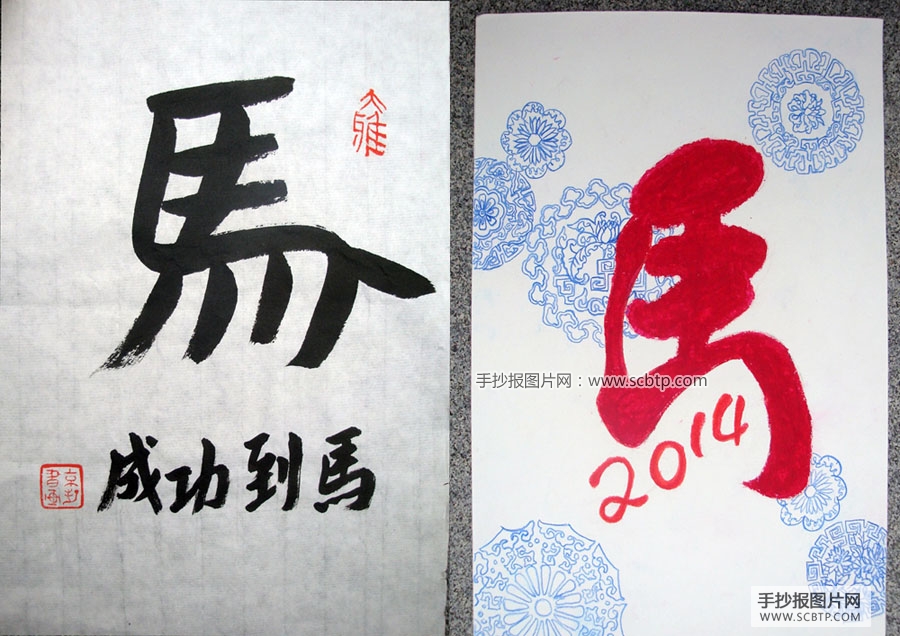 馬
大雅
馬到功成
馬
手抄报图片网：www.scbtp.com
2014
手抄报图片网
WWW.SCBTP.COM